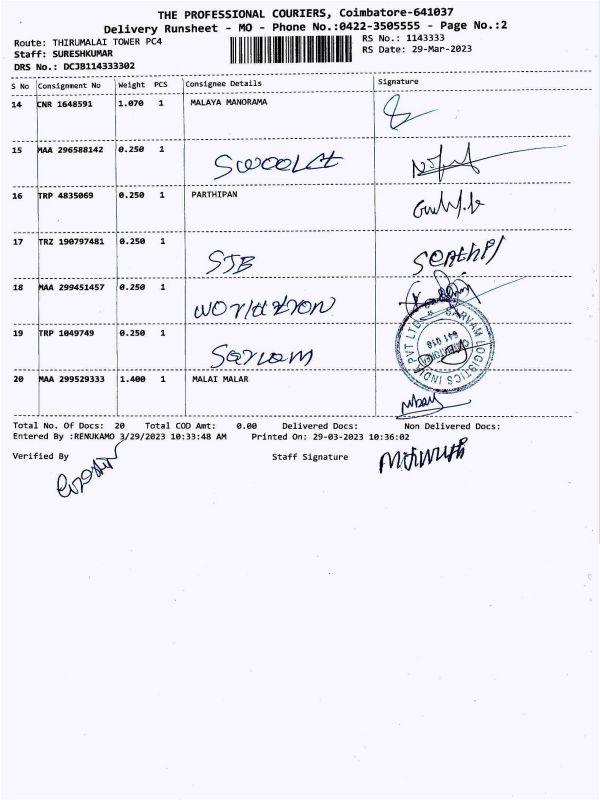 THE PROFESSIONAL COURIERS, Coimbatore-641037
Delivery Runsheet - MO - Phone No.:0422-3505555 - Page No.:2
Route: THIRUMALAI TOWER PC4 RS No.: 1143333
Staff: SURESHKUMAR RS Date: 29-Mar-2023
DRS No.: DCJB114333302
S No Consignment No Weight PCS Consignee Details Signature
14 CNR 1648591 1.070 1 MALAYA MANORAMA
15 MAA 296588142 0.250 1
16 TRP 4835069 0.250 1 PARTHIPAN
17 TRZ 190797481 0.250 1 STB
18 MAA 299451457 0.250 1
19 TRP 1049749 0.250 1 Sarvam
SARVAM LOGISTICS INDIA PVT LTD
20 MAA 299529333 1.400 1 MALAI MALAR
Total No. Of Docs: 20 Total COD Amt: 0.00 Delivered Docs: Non Delivered Docs:
Entered By :RENUKAMO 3/29/2023 10:33:48 AM Printed On: 29-03-2023 10:36:02
Verified By Staff Signature